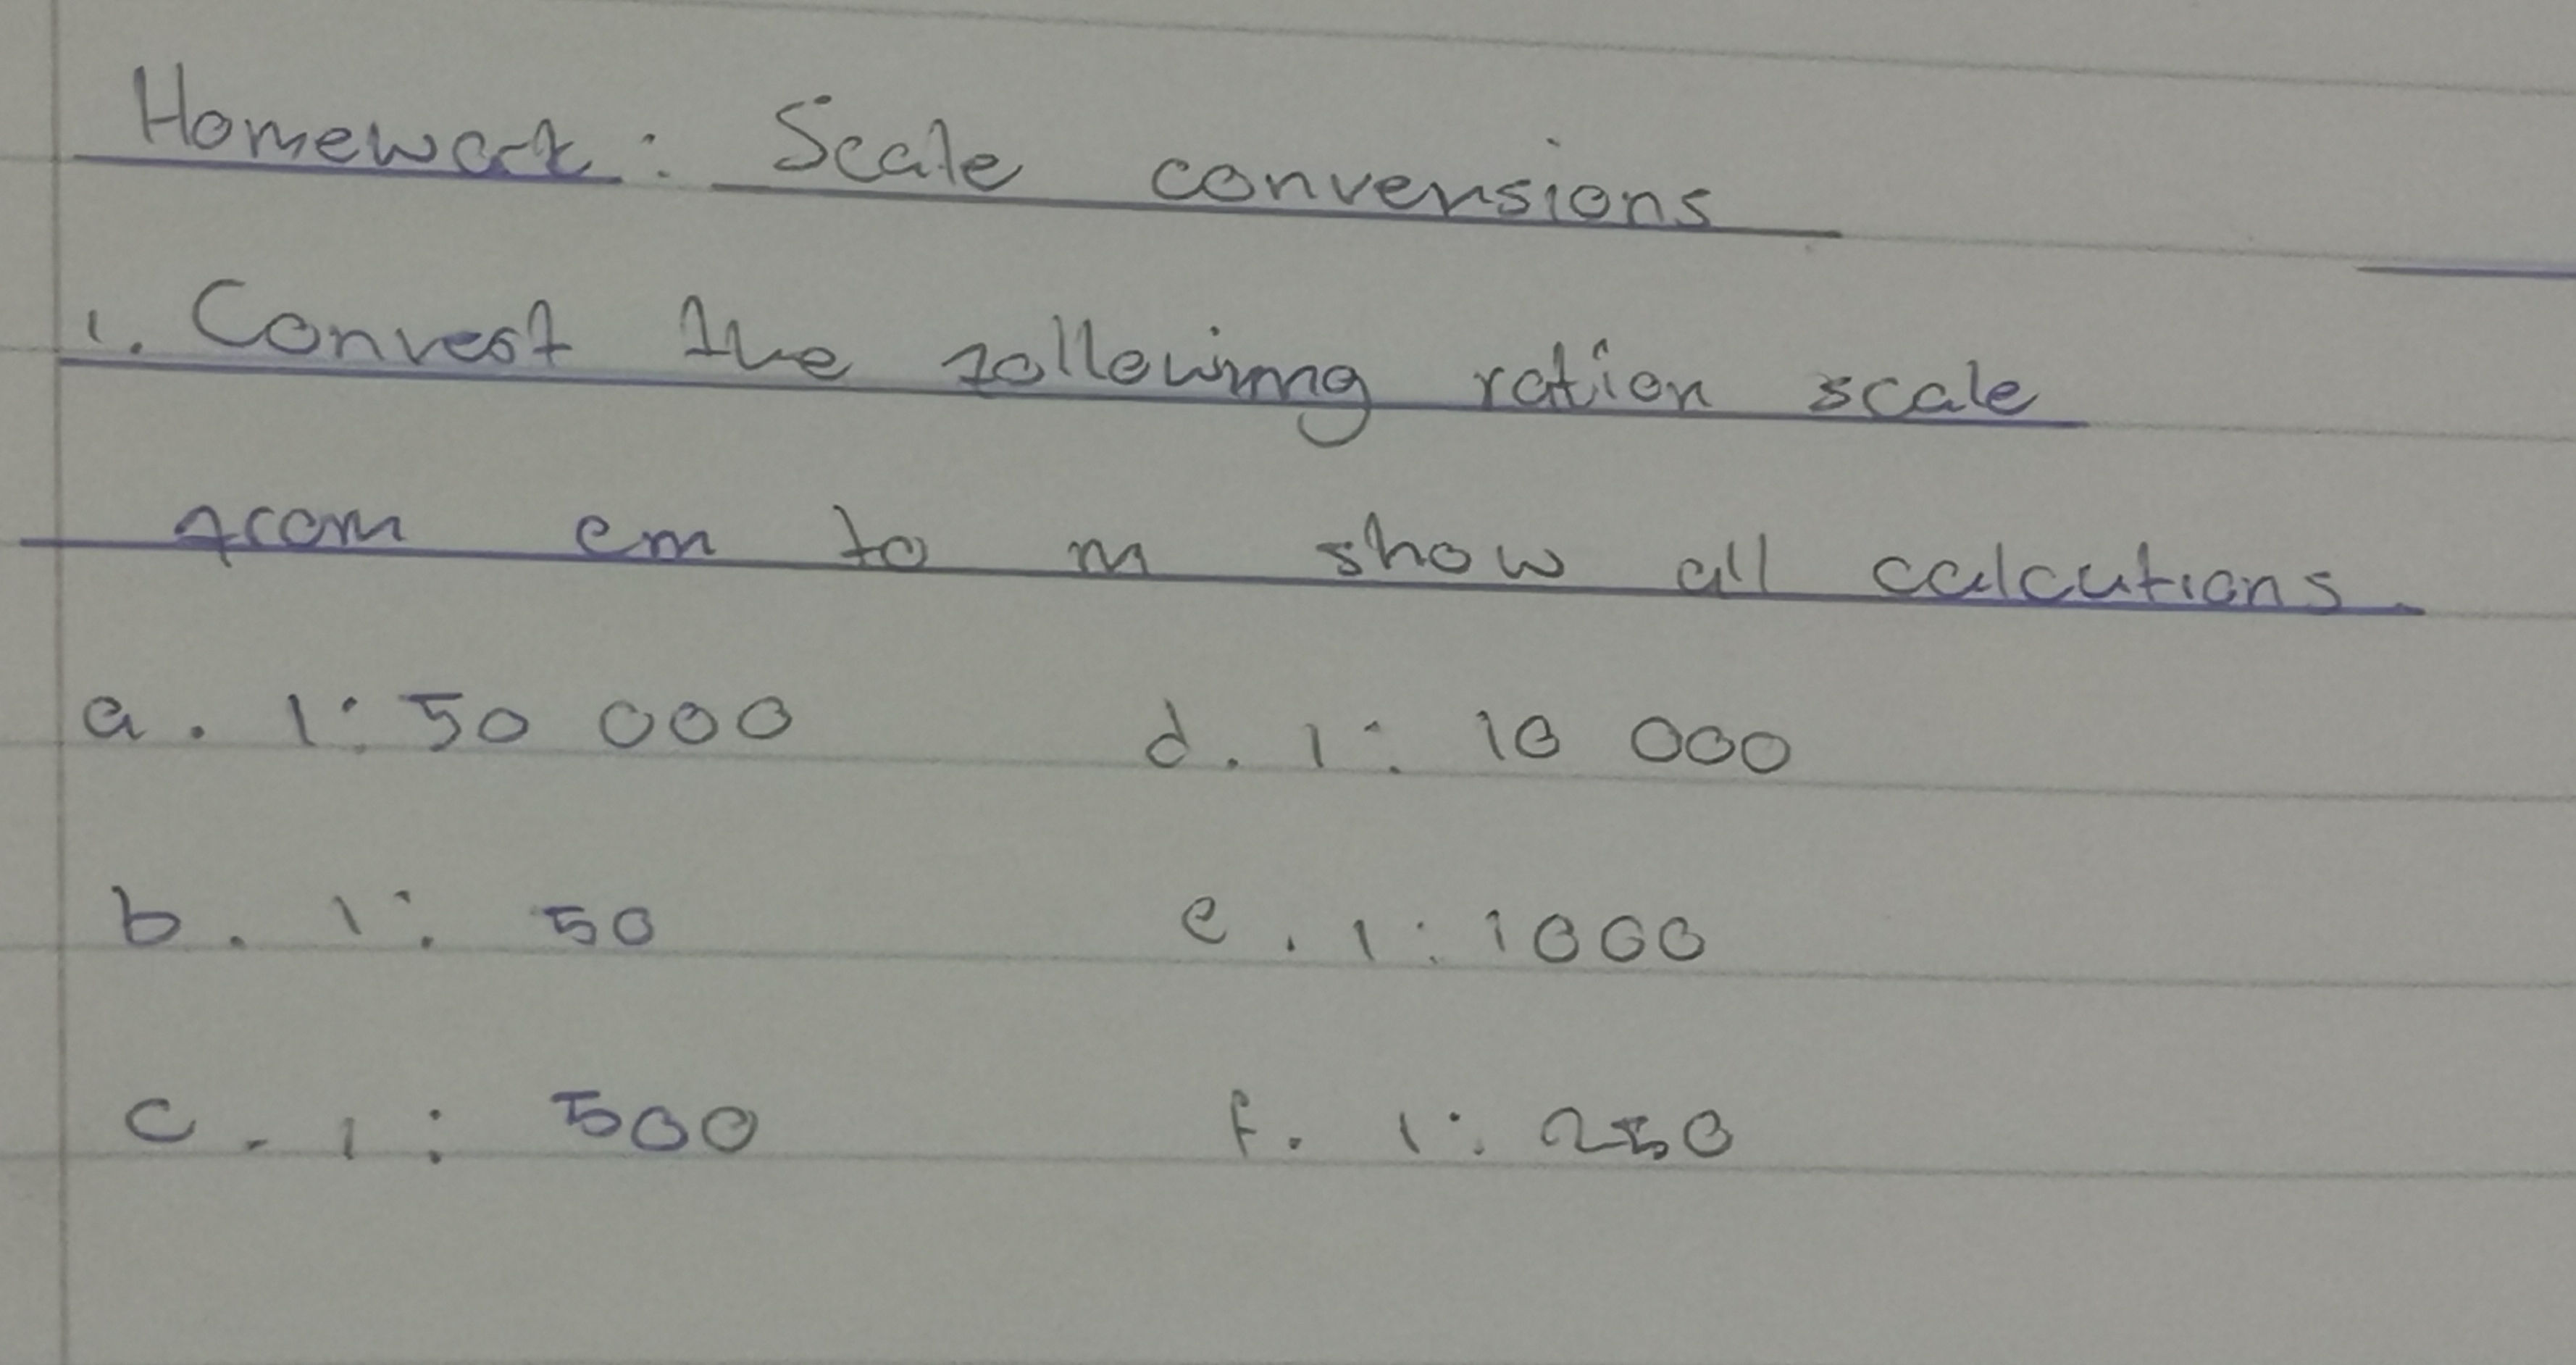 Homework: Scale conversions
1. Convert the following ration scale
from cm to m show all calcutions
a. 1: 50 000 d. 1: 10 000
b. 1: 50 e. 1: 1000
c. 1: 500 f. 1: 250